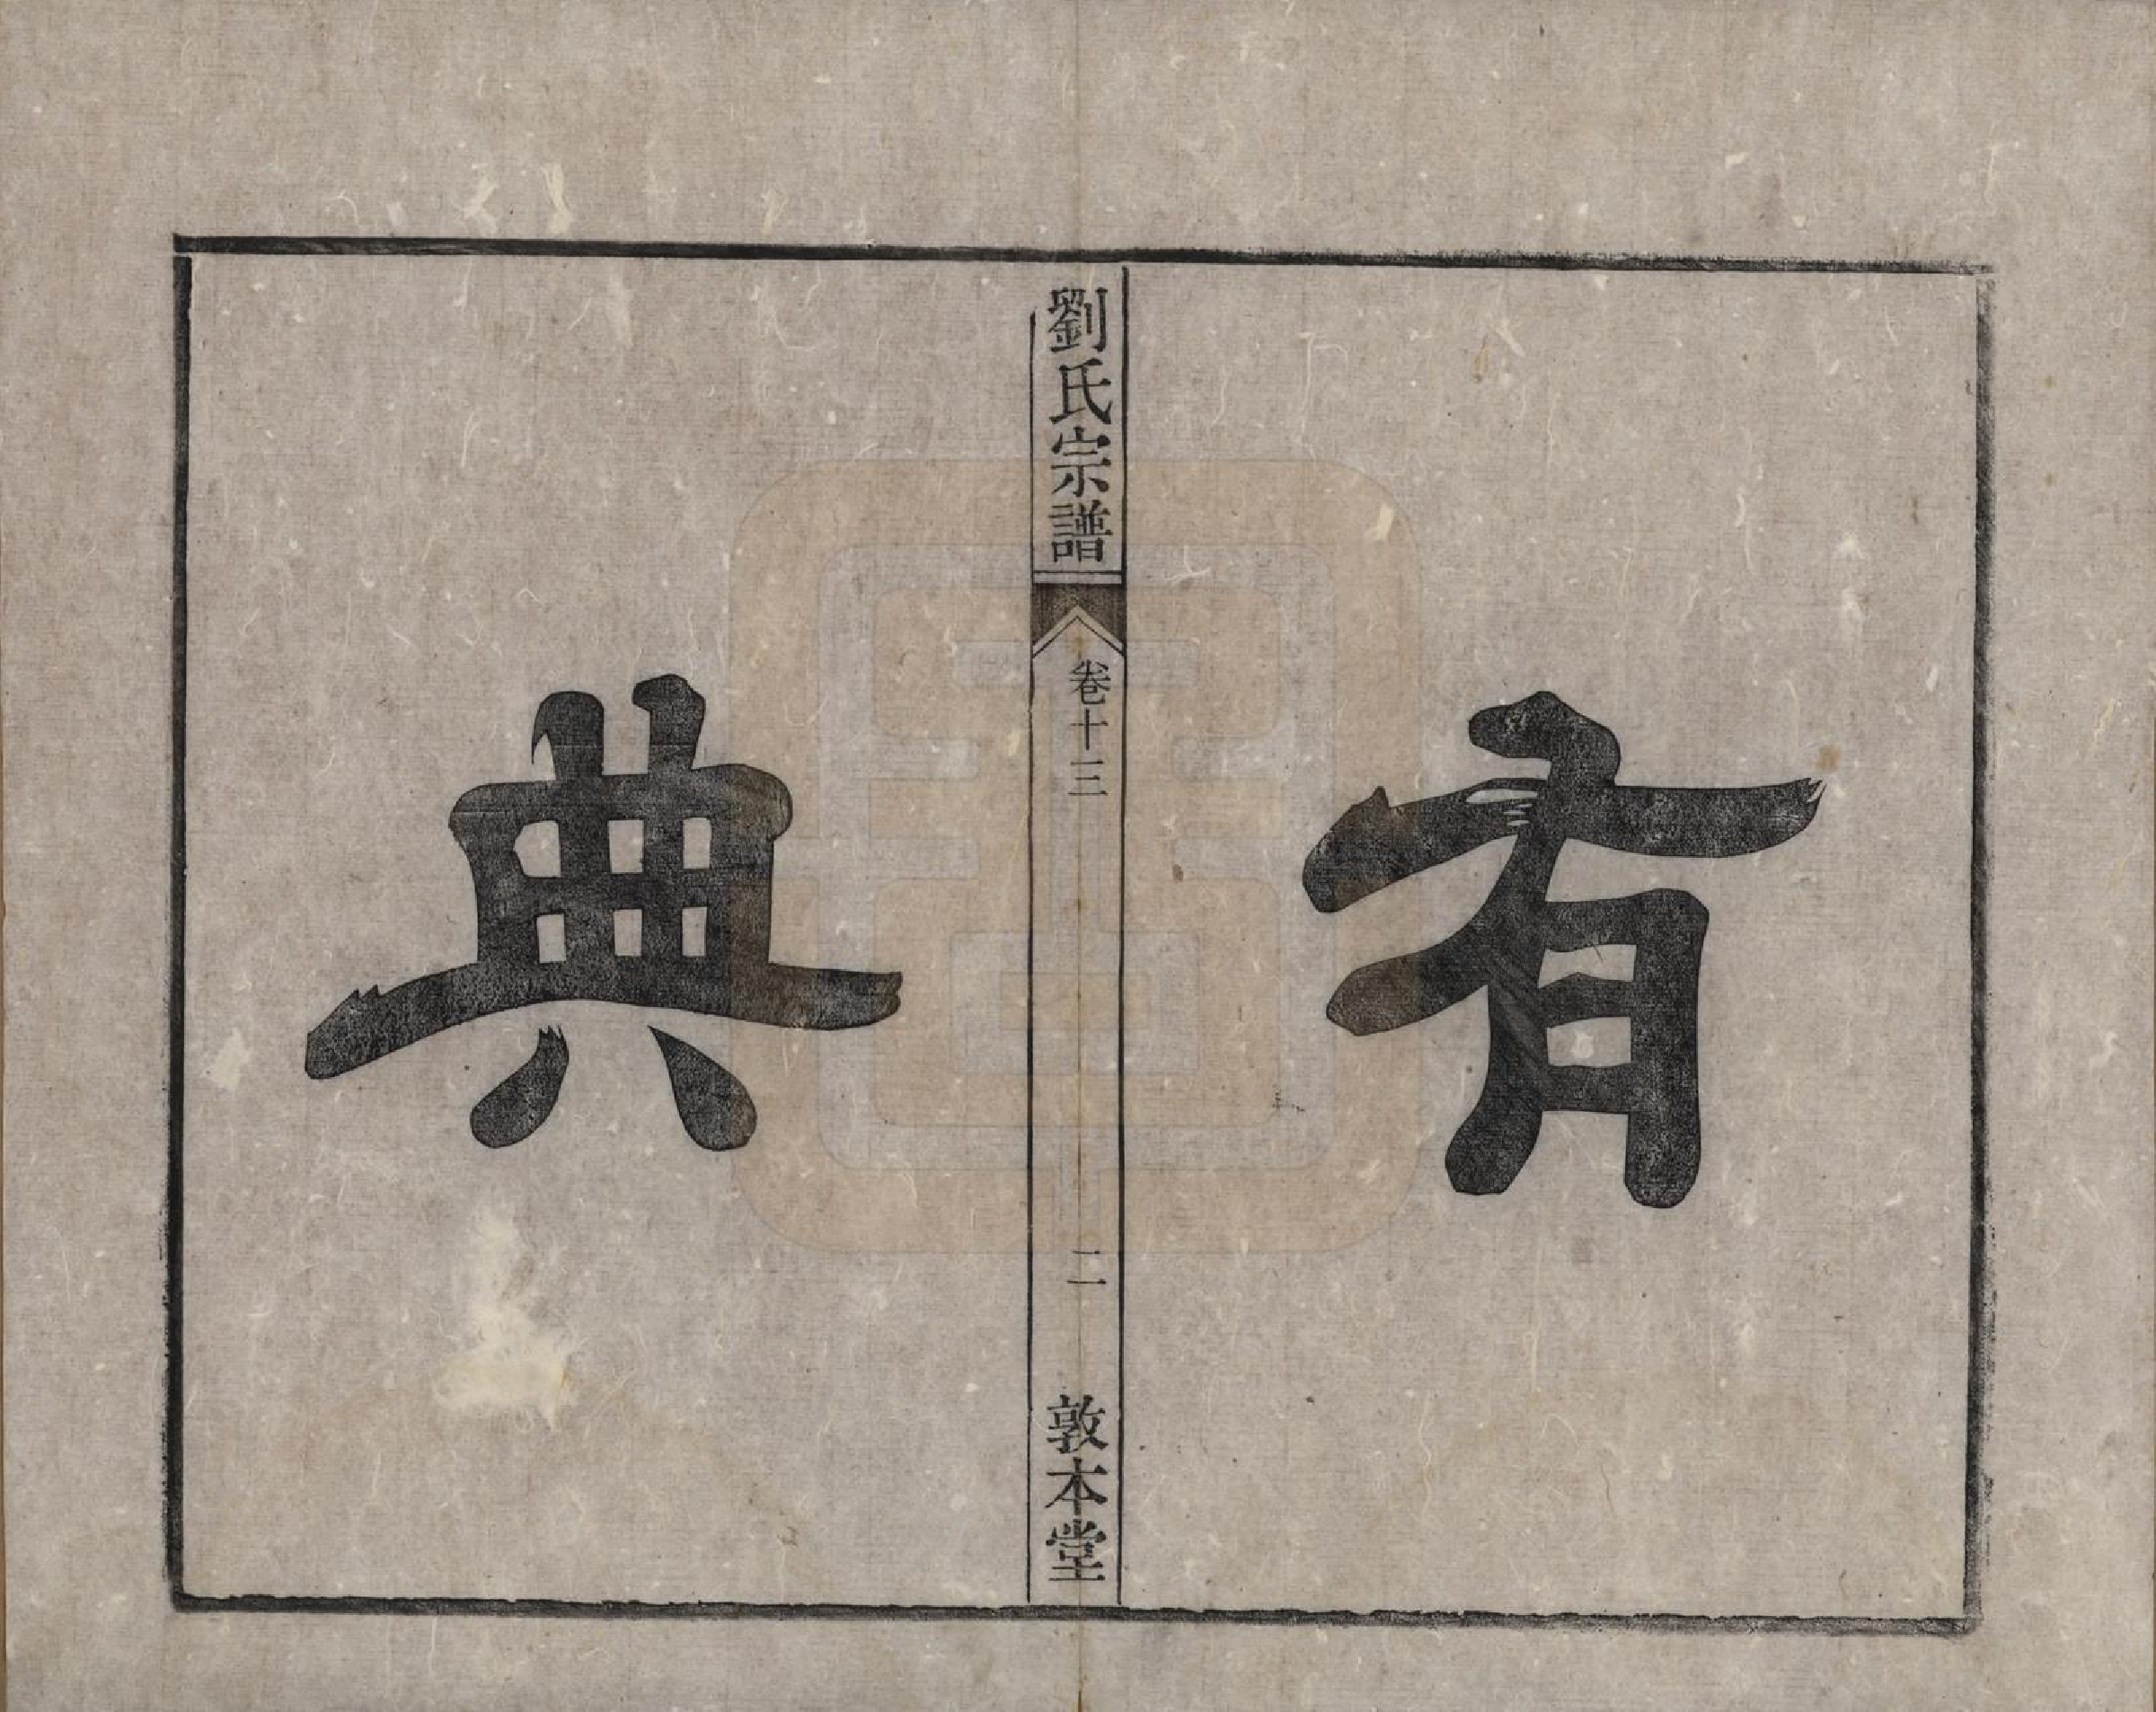 有
劉氏宗譜
卷十三
二
敦本堂
典